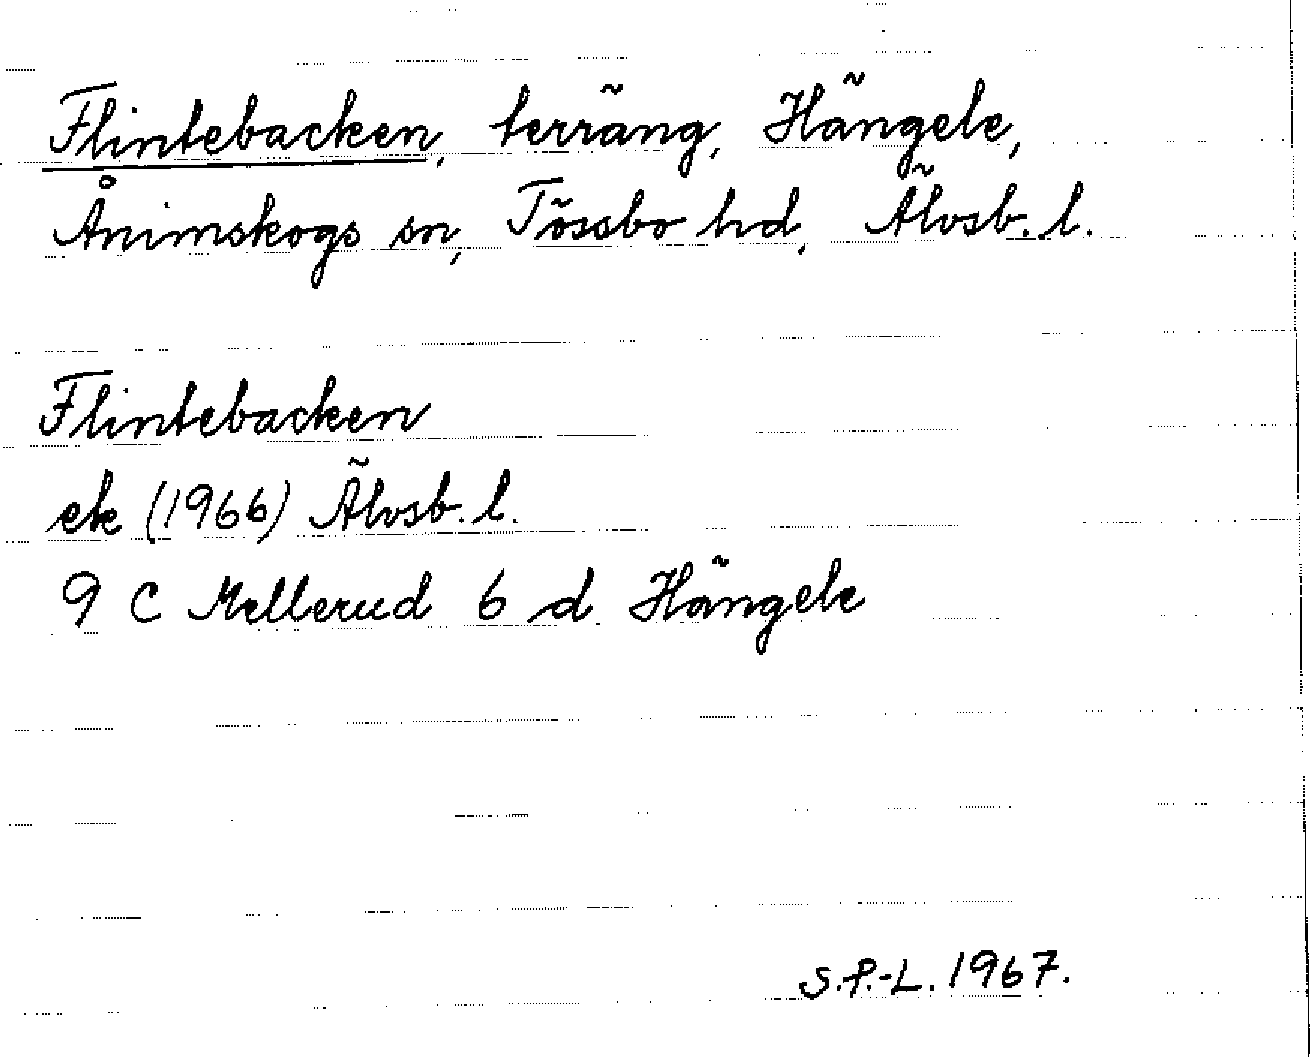 Flintebacken, terräng, Hängele,
Ånimskogs sn, Tössbo hd, Älvsb. l.
Flintebacken
ek (1966) Älvsb. l.
9 C Mellerud 6 d Hängele
S.P.-L. 1967.